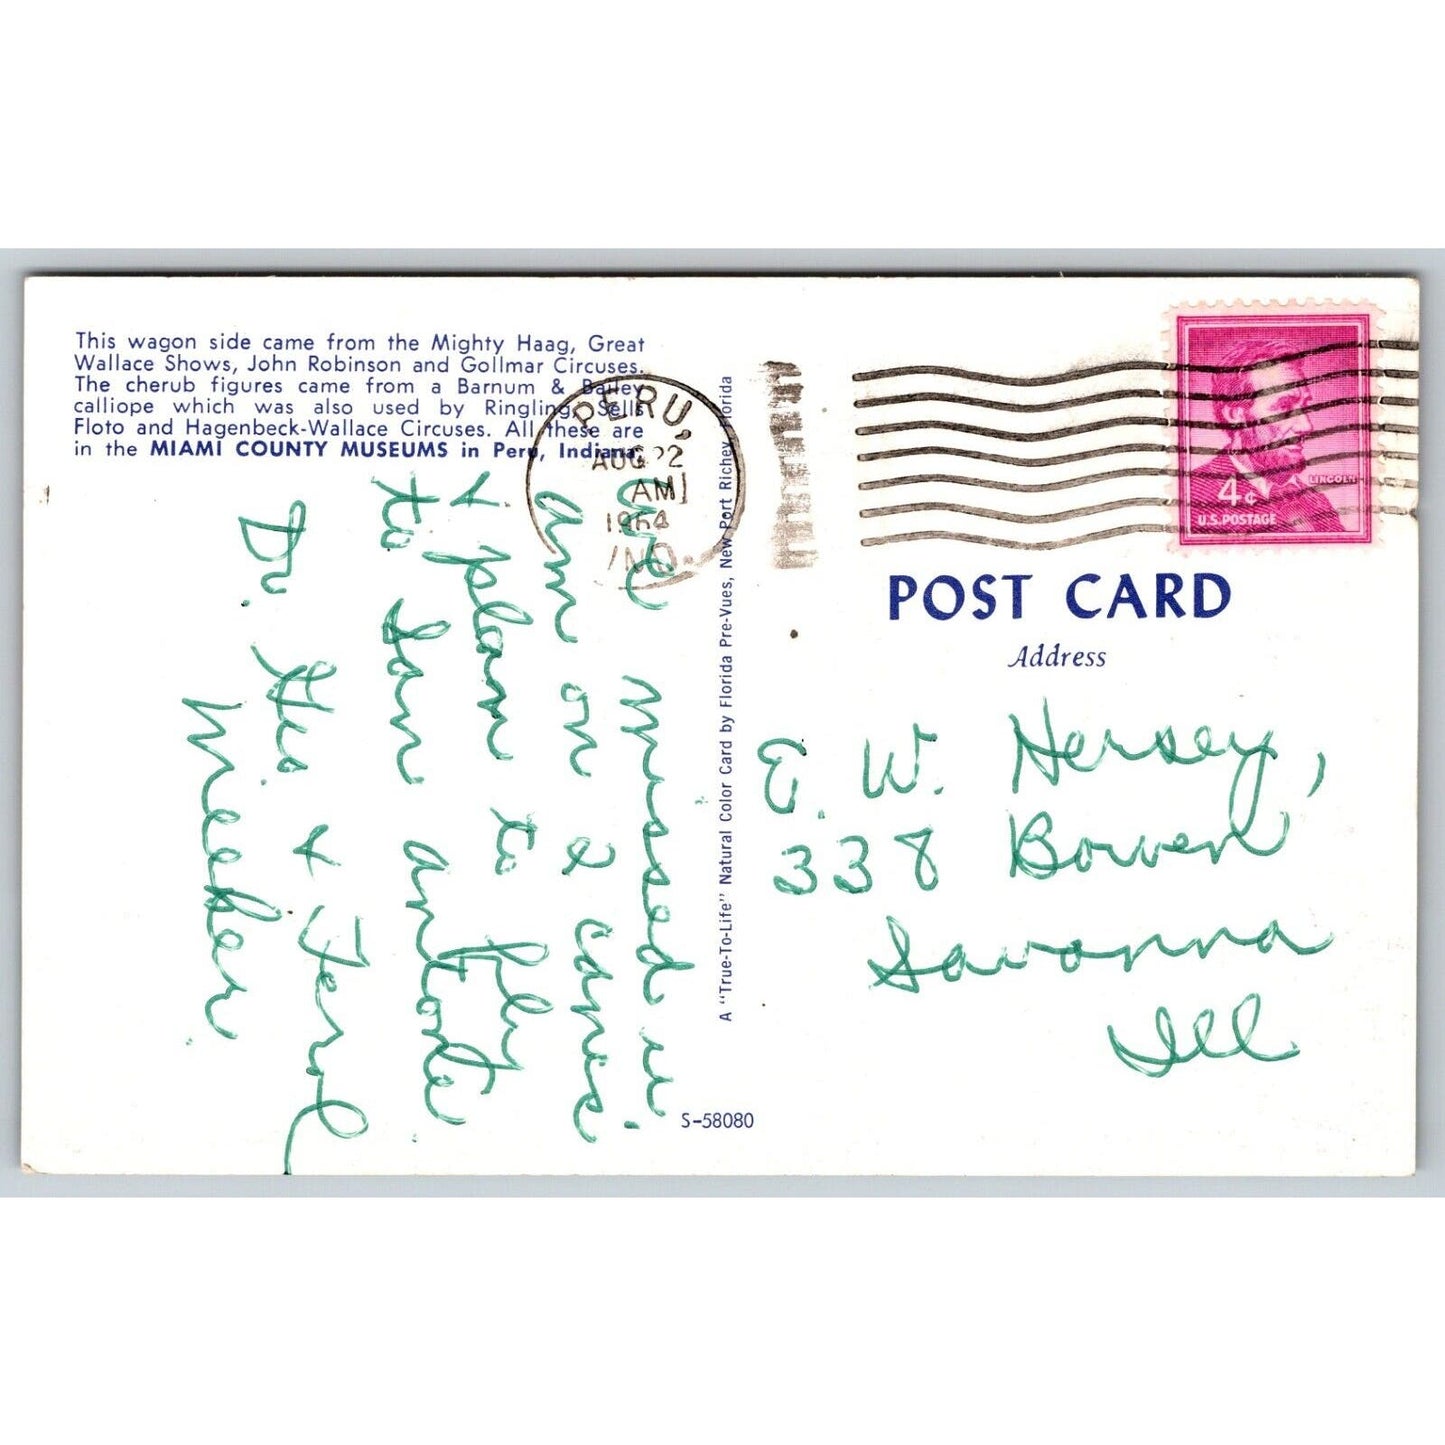 This wagon side came from the Mighty Haag, Great
Wallace Shows, John Robinson and Gollmar Circuses.
The cherub figures came from a Barnum & Bailey
calliope which was also used by Ringling, Sells
Floto and Hagenbeck-Wallace Circuses. All these are
in the MIAMI COUNTY MUSEUMS in Peru, Indiana.
missed u.
am on 2 canes
& plan to fly
to San Antonio
Dr. Gus & Fern
PERU,
AUG 22
AM
1964
IND.
A "True-To-Life" Natural Color Card by Florida Pre-Vues, New Port Richey, Florida
S-58080
4¢
LINCOLN
U.S. POSTAGE
POST CARD
Address
E. W. Hersey,
338 Bowen
Savanna
Ill.